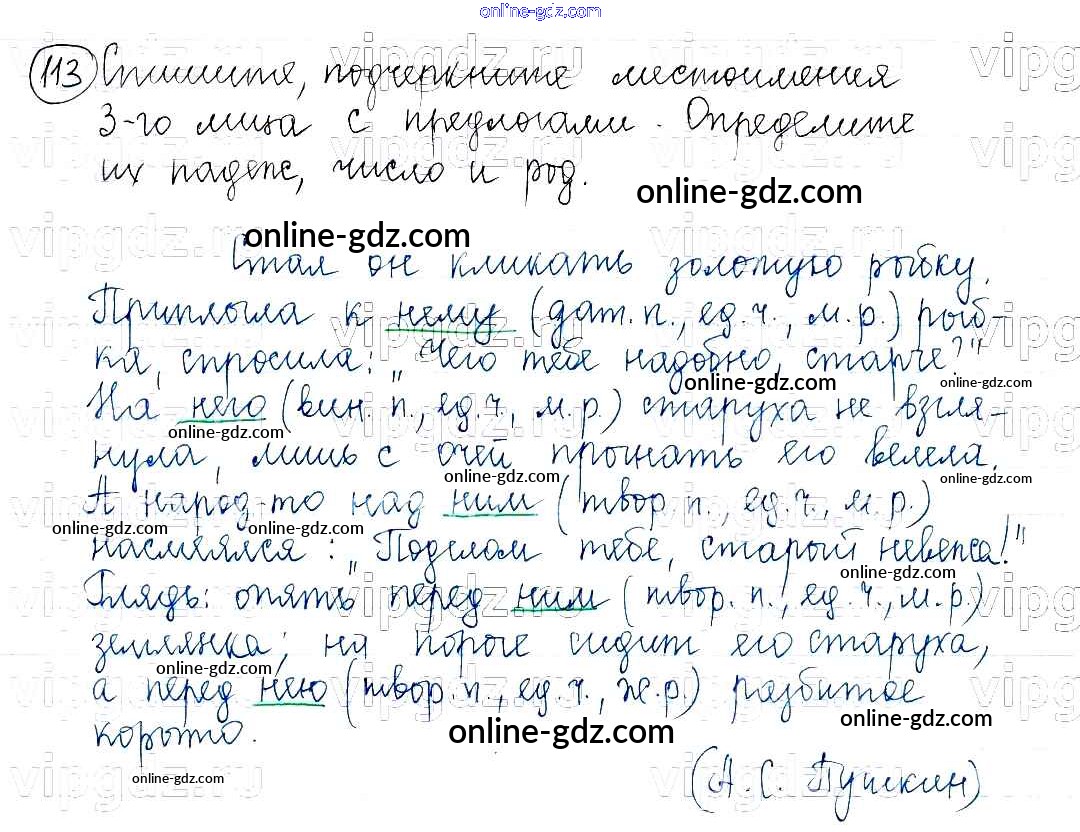 online-gdz.com
113 Спишите, подчеркните местоимения
3-го лица с предлогами. Определите
их падеж, число и род.
online-gdz.com
online-gdz.com
Стал он кликать золотую рыбку.
Приплыла к нему (дат. п., ед. ч., м. р.) рыб-
ка, спросила: „Чего тебе надобно, старче?"
online-gdz.com
online-gdz.com
На него (вин. п., ед. ч., м. р.) старуха не взгля-
online-gdz.com
нула, лишь с очей прогнать его велела.
online-gdz.com
online-gdz.com
А народ-то над ним (твор. п., ед. ч., м. р.)
online-gdz.com
online-gdz.com
насмеялся: „Поделом тебе, старый невежа!"
online-gdz.com
Глядь: опять перед ним (твор. п., ед. ч., м. р.)
землянка; на пороге сидит его старуха,
online-gdz.com
а перед нею (твор. п., ед. ч., ж. р.) разбитое
online-gdz.com
корыто.
online-gdz.com
online-gdz.com
(А. С. Пушкин)